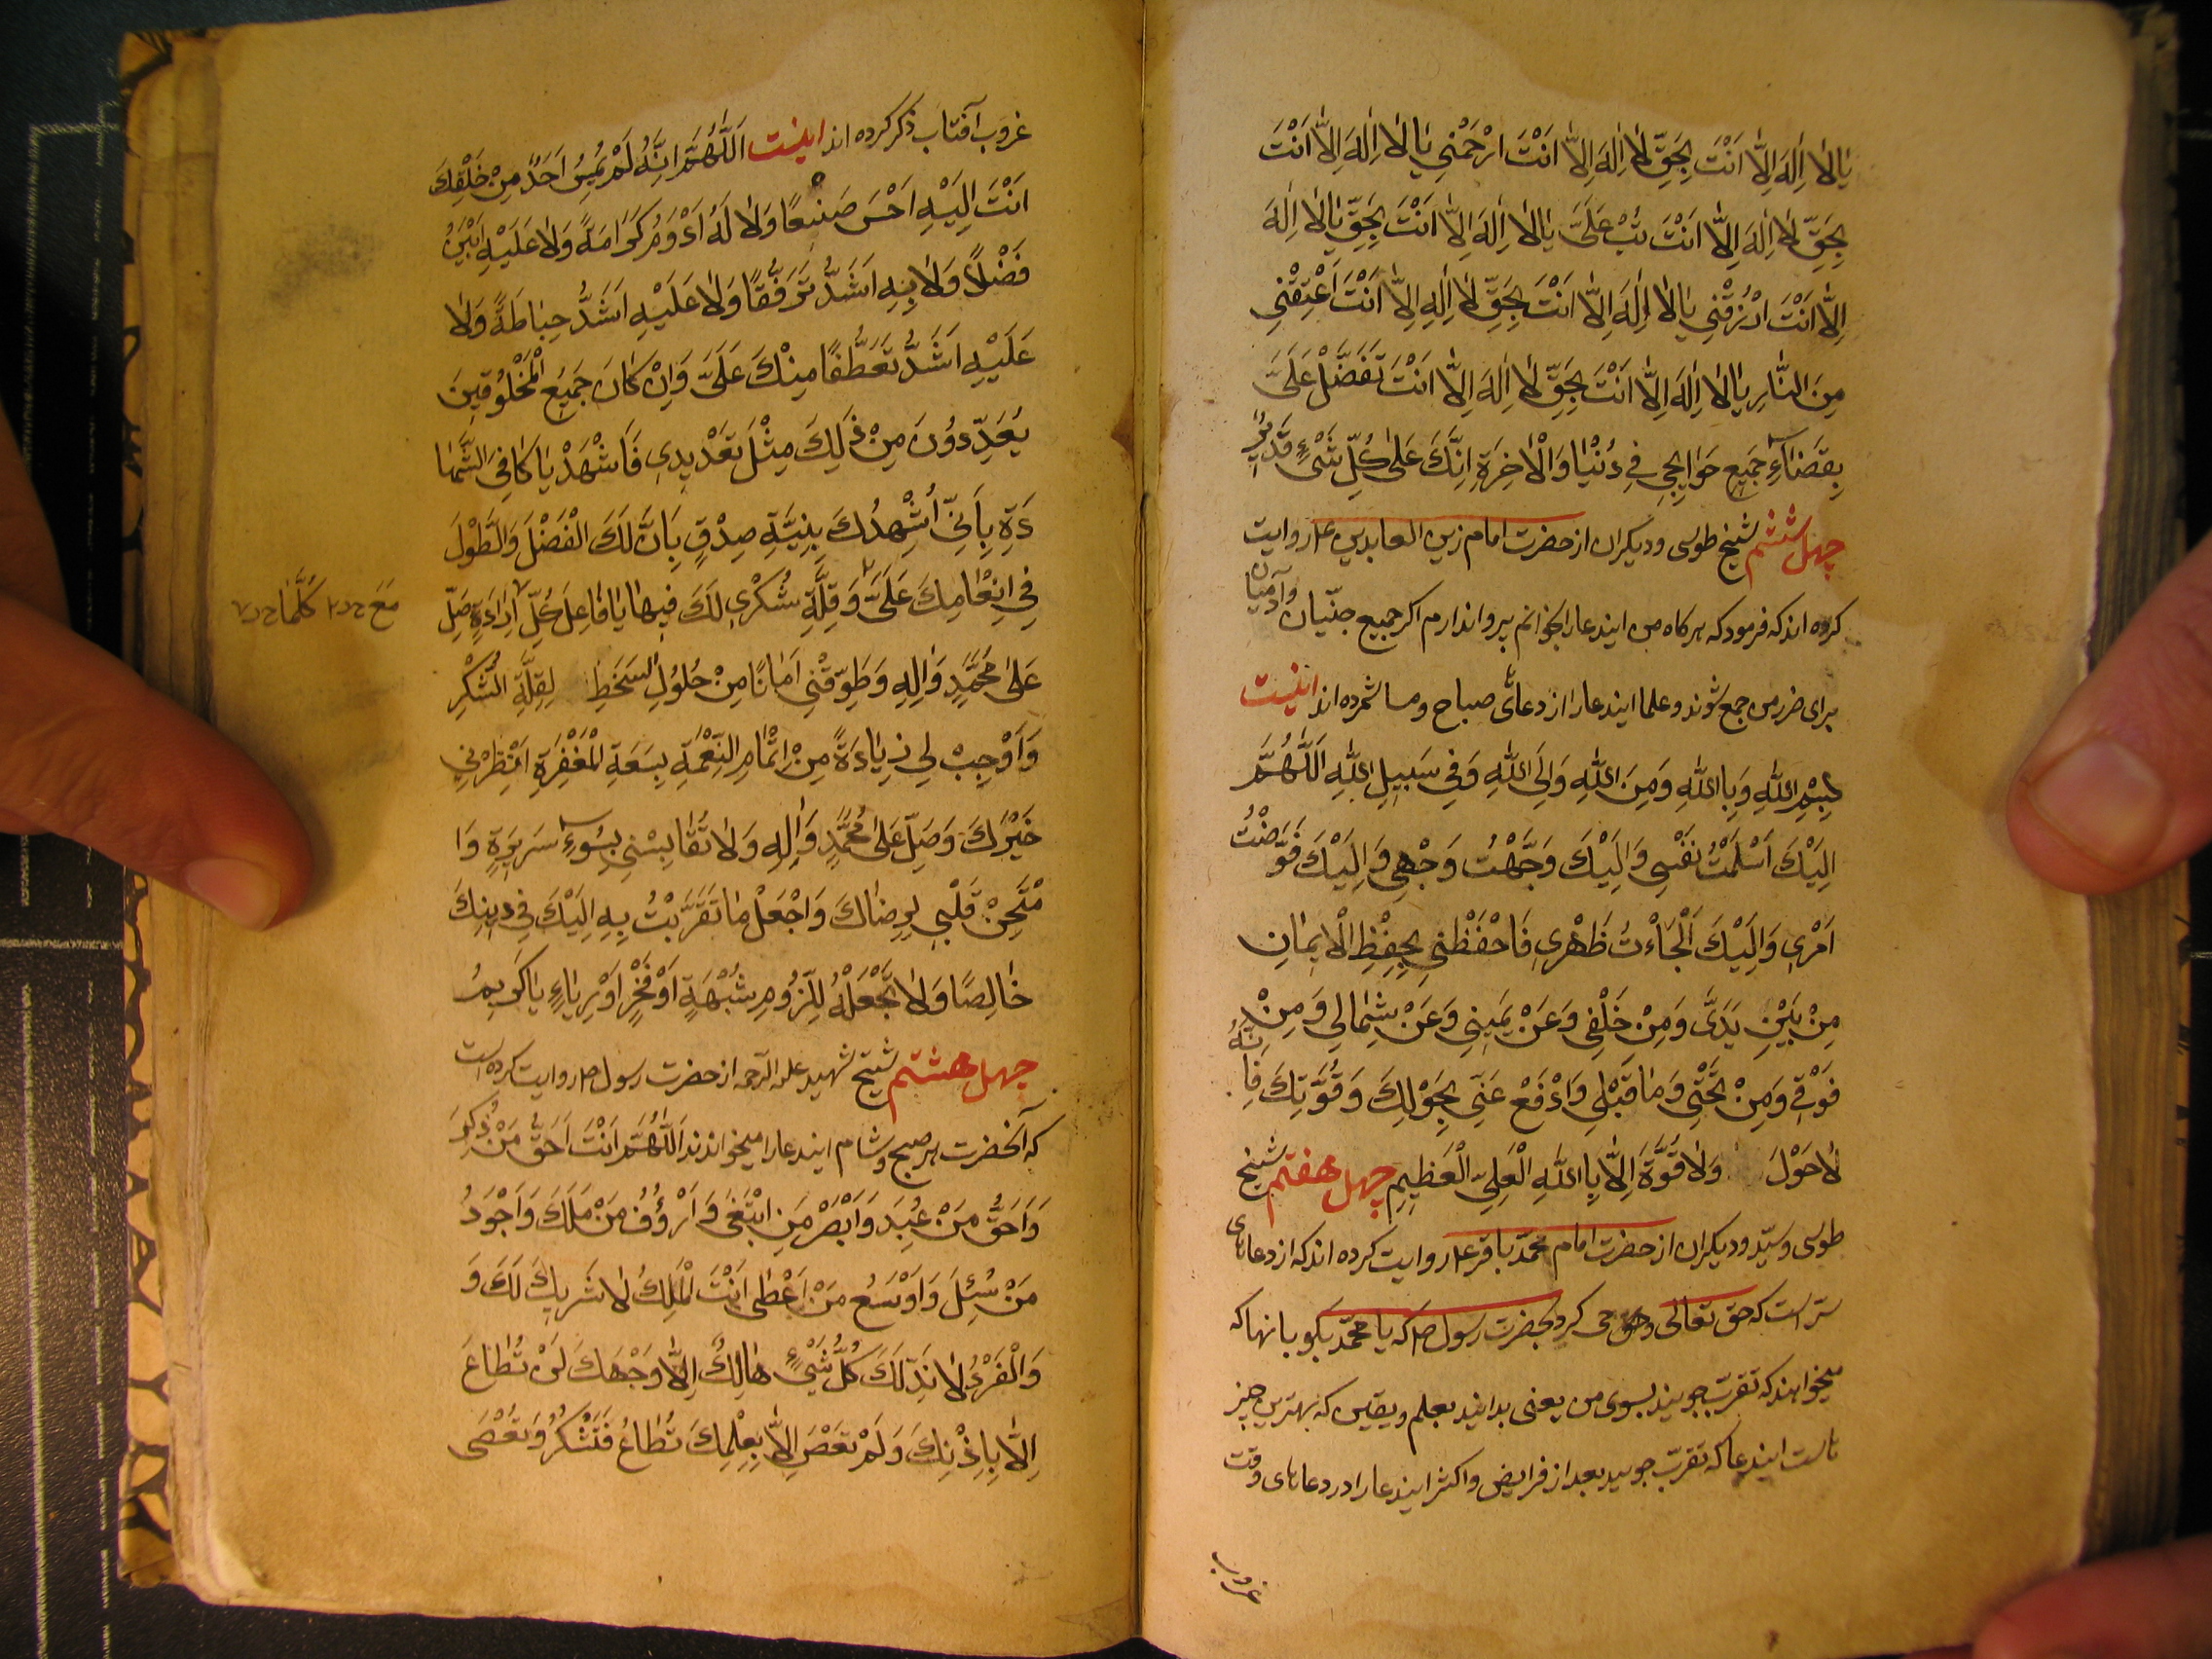 يٰا لاٰ اِلٰهَ اِلاّٰ اَنْتَ بِحَقِّ لاٰ اِلٰهَ اِلاّٰ اَنْتَ ارْحَمْني يٰا لاٰ اِلٰهَ اِلاّٰ اَنْتَ
بِحَقِّ لاٰ اِلٰهَ اِلاّٰ اَنْتَ تُبْ عَلَىَّ يٰا لاٰ اِلٰهَ اِلاّٰ اَنْتَ بِحَقِّ يٰا لاٰ اِلٰهَ
اِلاّٰ اَنْتَ ارْزُقْني يٰا لاٰ اِلٰهَ اِلاّٰ اَنْتَ بِحَقِّ لاٰ اِلٰهِ اِلاّٰ اَنْتَ اَعْتِقْني
مِنَ النّٰارِ يٰا لاٰ اِلٰهَ اِلاّٰ اَنْتَ بِحَقِّ لاٰ اِلٰهَ اِلاّٰ اَنْتَ تَفَضَّلْ عَلَىَّ
بِقَضٰآءِ جَميعِ حَوٰايِجي فِي دُنْيٰا وَالْاٰخِرَةِ اِنَّكَ عَلىٰ كُلِّ شَىْءٍ قَديرٌ
چهل ششم شیخ طوسی و دیکران از حضرت امام زین العابدین ع روایت
کرده اند که فرمود که هر کاه من ایندعا را بخوانم پروا ندارم اکر جمیع جنّیان و آدمیان
برای ضرر من جمع شوند و علما ایندعا را از دعای صباح و مسا شمرده اند اینست
بِسْمِ اللهِ وَبِاللهِ وَمِنَ اللهِ وَاِلَى اللهِ وَفي سَبيلِ اللهِ اَللّٰهُمَّ
اِلَيْكَ اَسْلَمْتُ نَفْسي وَاِلَيْكَ وَجَّهْتُ وَجْهي وَاِلَيْكَ فَوَّضْتُ
اَمْري وَاِلَيْكَ اَلْجَأْتُ ظَهْري فَاحْفَظْني بِحِفْظِ الْاِيمٰانِ
مِنْ بَيْنِ يَدَىَّ وَمِنْ خَلْفي وَعَنْ يَميني وَعَنْ شِمٰالي وَمِنْ
فَوْقي وَمِنْ تَحْتي وَمٰا قَبْلي وَادْفَعْ عَنّي بِحَوْلِكَ وَقُوَّتِكَ فَاِنَّهُ
لاٰ حَوْلَ وَلاٰ قُوَّةَ اِلاّٰ بِاللهِ الْعَلِيِّ الْعَظيمِ چهل هفتم شیخ
طوسی و سیّد و دیکران از حضرت امام محمّد باقر ع روایت کرده اند که از دعاهای
سرّ است که حق تعالی وحی کرد بحضرت رسول ص که یا محمّد بکو بانها که
میخواهند که تقرب جویند بسوی من یعنی بدانید بعلم و یقین که بهترین چیز
هاست ایندعا که تقرب جویید بعد از فرایض و اکثر ایندعا را در دعاهای وقت
غروب
غروب آفتاب ذکر کرده اند اینست اَللّٰهُمَّ اِنَّهُ لَمْ يُمْسِ اَحَدٌ مِنْ خَلْقِكَ
اَنْتَ اِلَيْهِ اَحْسَ صَنيعًا وَلاٰ لَهُ اَدْوَمُ كَرٰامَةً وَلاٰ عَلَيْهِ اَبْيَنُ
فَضْلاً وَلاٰ بِهِ اَشَدُّ تَرَفُّقًا وَلاٰ عَلَيْهِ اَشَدُّ حِيٰاطَةً وَلاٰ
عَلَيْهِ اَشَدُّ تَعَطُّفًا مِنْكَ عَلَىَّ وَاِنْ كٰانَ جَميعُ الْمَخْلُوقينَ
يُعَدِّدُونَ مِنْ ذٰلِكَ مِثْلَ تَعْديدي فَاشْهَدْ يٰا كٰافِيَ الشَّهٰا
دَةِ بِاَنّي اُشْهِدُكَ بِنِيَّةِ صِدْقٍ بِاَنَّ لَكَ الْفَضْلَ وَالطَّوْلَ
في اِنْعٰامِكَ عَلَىَّ وَقِلَّةِ شُكْري لَكَ فيهٰا يٰا فٰاعِلَ كُلِّ اِرٰادَةٍ صَلِّ
مَعَ ح د ۲ كُلَّمٰا ح د ۷
عَلىٰ مُحَمَّدٍ وَاٰلِهِ وَطَوِّقْني اَمٰانًا مِنْ حُلُولِ السَخَطِ لِقِلَّةِ الشُّكْرِ
وَاَوْجِبْ لي زِيٰادَةً مِنْ اِتْمٰامِ النِّعْمَةِ بِسَعَةِ الْمَغْفِرَةِ اَنْظِرْني
خَيْرَكَ وَصَلِّ عَلىٰ مُحَمَّدٍ وَاٰلِهِ وَلاٰ تُقٰايِسْني بِسُوءِ سَريرَةٍ وَا
مْتَحِنْ قَلْبي لِرِضٰاكَ وَاجْعَلْ مٰا تَقَرَّبْتُ بِهِ اِلَيْكَ في دينِكَ
خٰالِصًا وَلاٰ تَجْعَلْهُ لِلُزُومِ شُبْهَةٍ اَوْ فَخْرٍ اَوْ رِيٰاءٍ يٰا كَريمُ
چهل هشتم شیخ شهید علیه الرحمه از حضرت رسول ص روایت کرده است
که آنحضرت هر صبح و شام ایندعا را میخواندند اَللّٰهُمَّ اَنْتَ اَحَقُّ مَنْ ذُكِرَ
وَاَحَقُّ مَنْ عُبِدَ وَاَبْصَرُ مَنِ ابْتُغِيَ وَاَرْؤُفُ مَنْ مَلَكَ وَاَجْوَدُ
مَنْ سُئِلَ وَاَوْسَعُ مَنْ اَعْطٰى اَنْتَ الْمَلِكُ لاٰ شَريكَ لَكَ وَ
وَالْفَرْدُ لاٰ نِدَّ لَكَ كُلُّ شَيْءٍ هٰالِكٌ اِلاّٰ وَجْهَكَ لَنْ تُطٰاعَ
اِلاّٰ بِاِذْنِكَ وَلَمْ تُعْصَ اِلاّٰ بِعِلْمِكَ تُطٰاعُ فَتَشْكُرُ وَتُعْصٰى